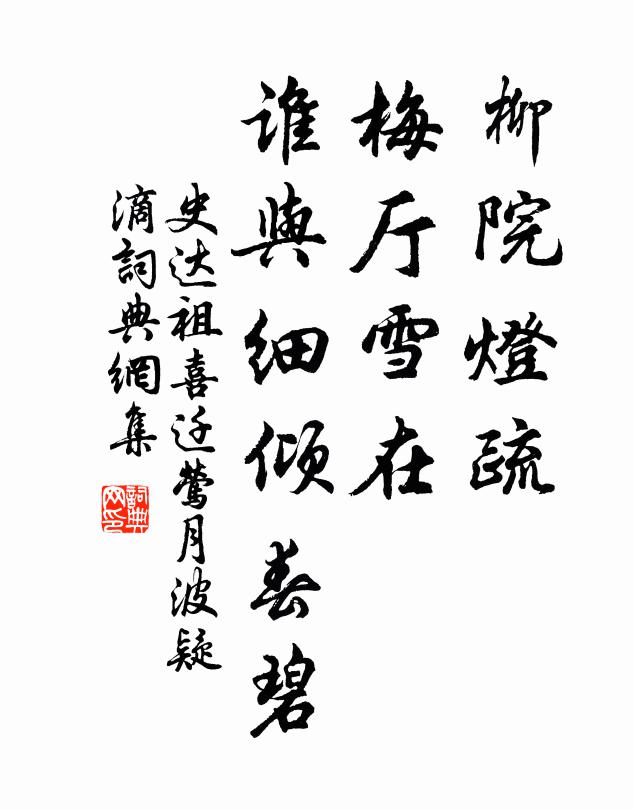 柳院燈疏
梅厅雪在
誰與细倾春碧
史达祖喜迁鶯月波疑
滴詞典網集
詞典网印